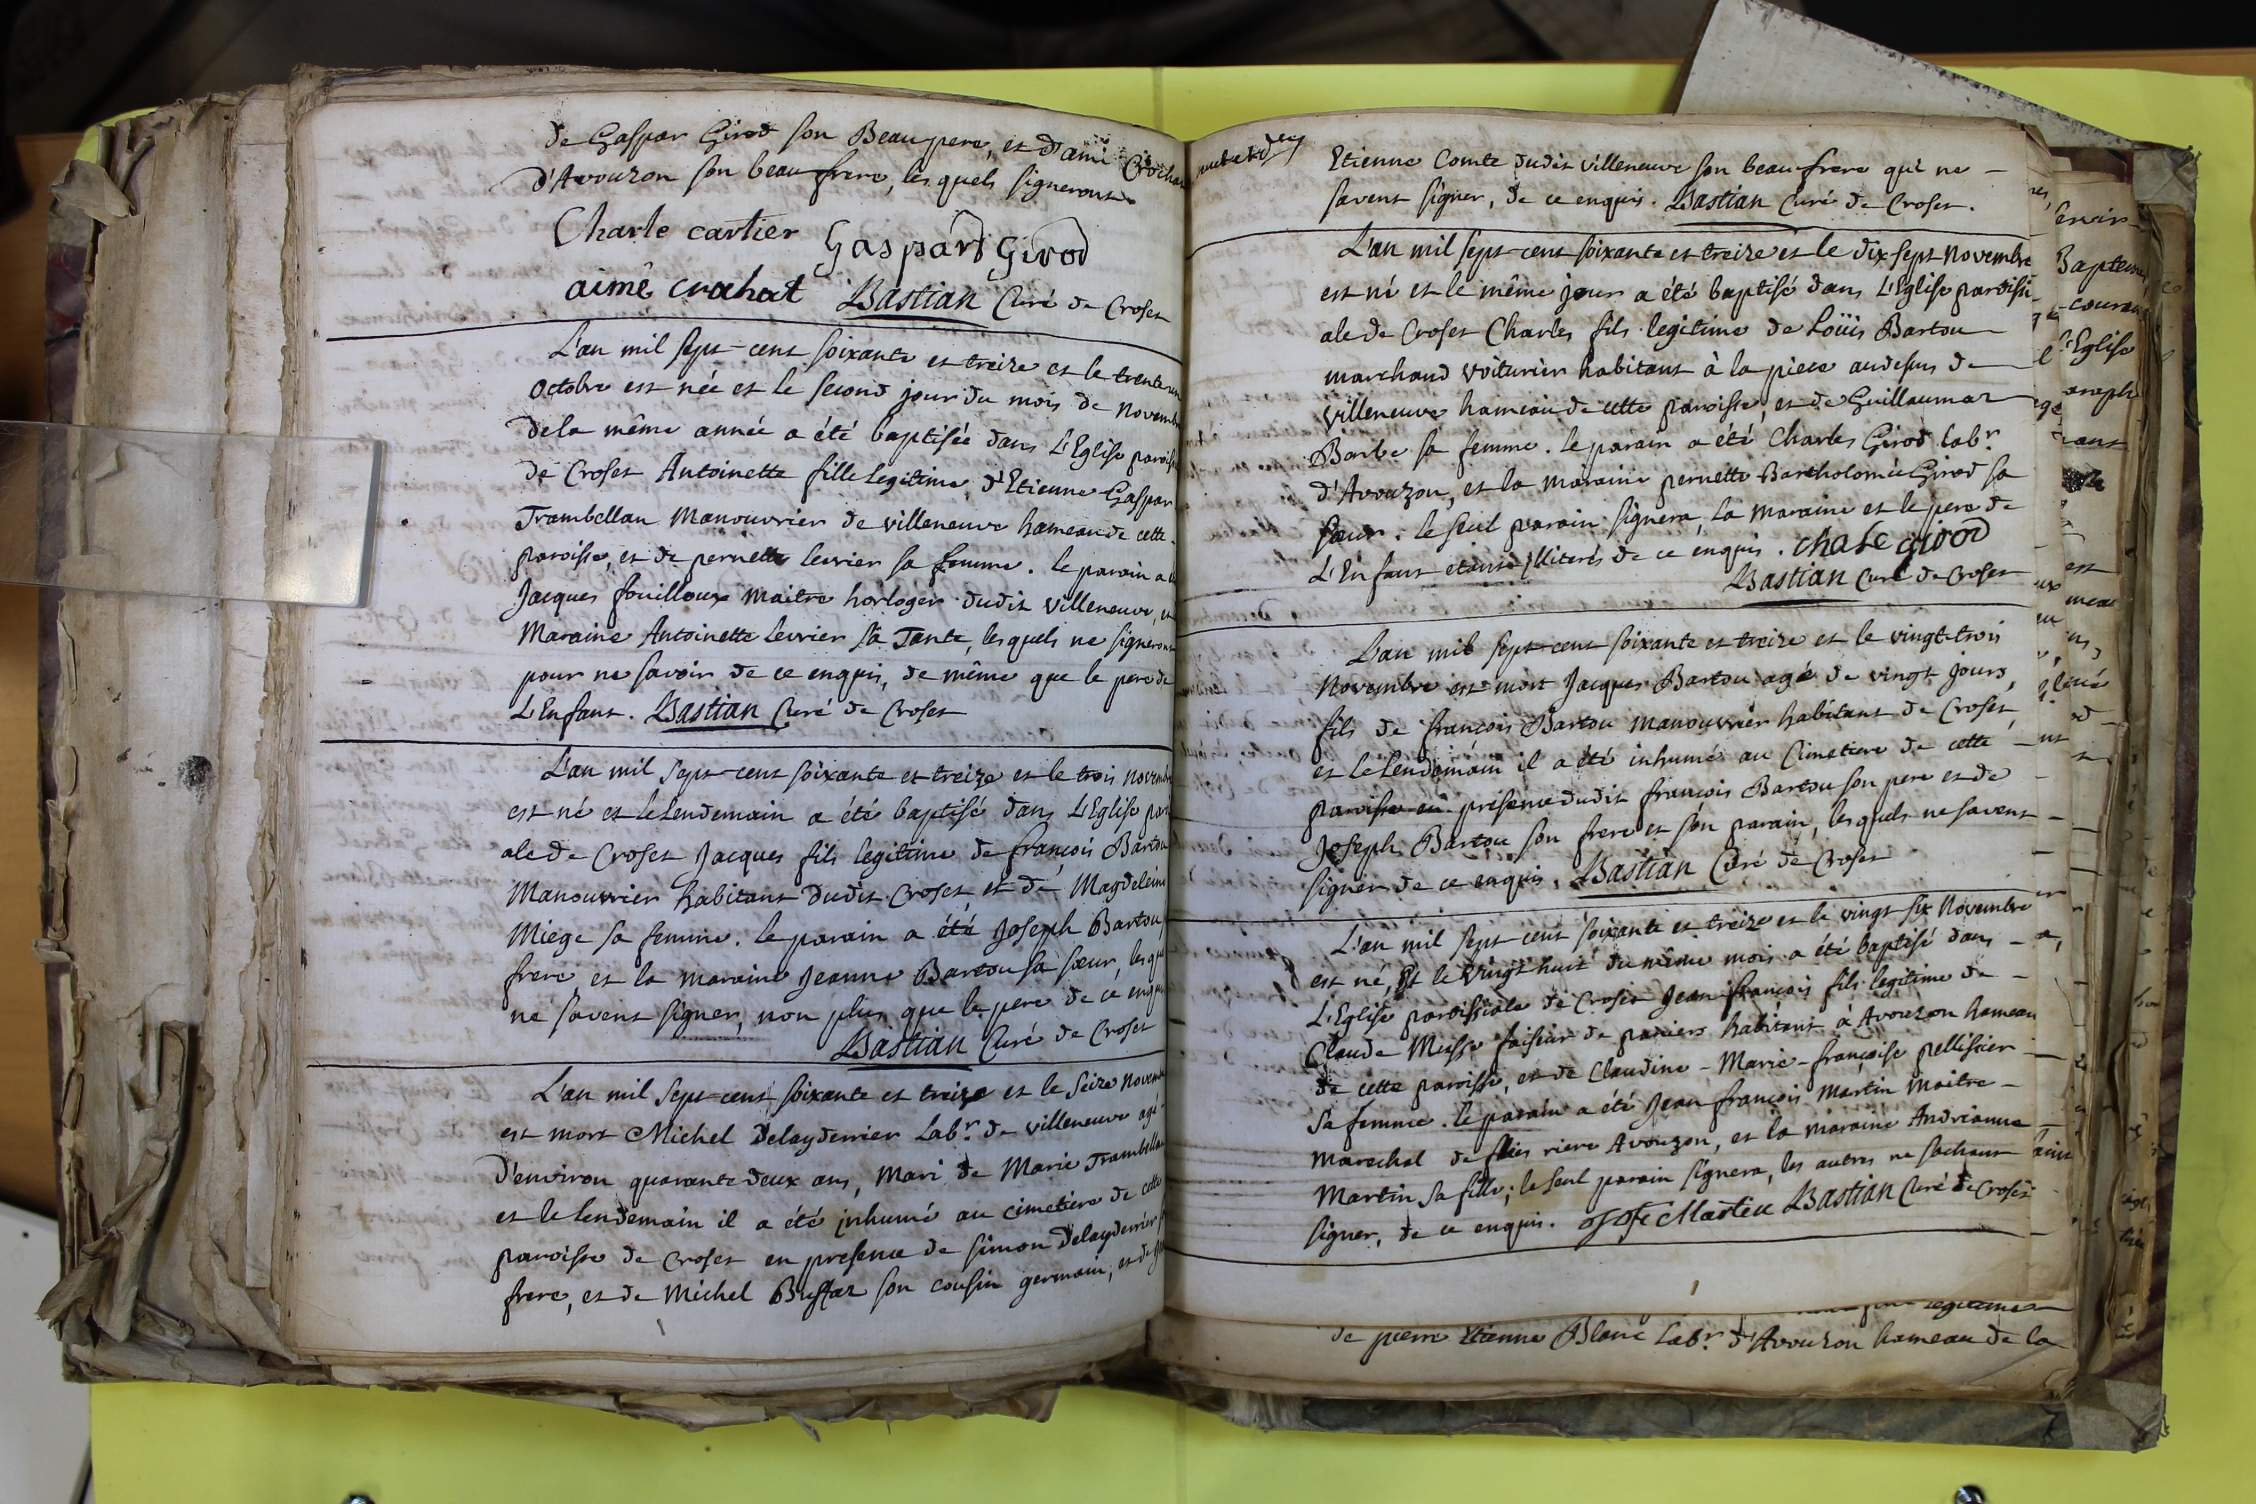 de Gaspar Girod son Beau pere, et d'ami Crochat
d'Avouzon son beau frere, les quels signeront.
Charle cartier Gaspard Girod
aimé crochat Bastian Curé de Croset
L'an mil sept-cent soixante et treize et le trente un
Octobre est née et le second jour du mois de Novembre
de la même année a été baptisée dans L'Eglise parois
de Croset Antoinette fille legitime d'Etienne Gaspar
Trambellan Manouvrier de villeneuve hameau de cette
paroisse, et de pernette levrier sa femme. le parain a
Jacques fouilloux maitre horloger dudit villeneuve, et
Maraine Antoinette levrier sa Tante, les quels ne signeront
pour ne savoir de ce enquis, de même que le pere de
L'Enfant. Bastian Curé de Croset
L'an mil sept-cent soixante et treize et le trois novembre
est né et le lendemain a été baptisé dans L'Eglise paroi
ale de Croset Jacques fils legitime de françois Bartou
Manouvrier habitant dudit Croset, et de Magdeleine
Miege sa femme. le parain a été Joseph Bartou
frere, et la maraine Jeanne Bartou sa sœur, les quels
ne savent signer, non plus que le pere de ce enquis
Bastian Curé de Croset
L'an mil sept-cent soixante et treize et le seize novembre
est mort Michel Delayderrier Labr. de villeneuve agé
d'environ quarante deux ans, Mari de Marie Trambellan
et le lendemain il a été inhumé au cimetiere de cette
paroisse de Croset en presence de simon Delayderrier
frere, et de Michel Buffaz son cousin germain, et de
Etienne Comte dudit villeneuve son beau frere qui ne
savent signer, de ce enquis. Bastian Curé de Croset.
L'an mil sept-cent soixante et treize et le dix sept Novembre
est né et le même jour a été baptisé dans L'Eglise paroissi
ale de Croset Charles fils legitime de Loüis Bartou
marchand voiturier habitant à la piece audesus de
villeneuve hameau de cette paroisse, et de Guillaumaz
Barbe sa femme. le parain a été Charles Girod labr.
d'Avouzon, et la maraine pernette Bartholomée Girod sa
sœur. le seul parain signera, la maraine et le pere de
L'Enfant etants illiterés de ce enquis. chale girod
Bastian Curé de Croset
L'an mil sept-cent soixante et treize et le vingt-trois
Novembre est mort Jacques Bartou agé de vingt jours,
fils de françois Bartou manouvrier habitant de Croset,
et le lendemain il a été inhumé au Cimetiere de cette
paroisse en présence dudit françois Bartou son pere et de
Joseph Bartou son frere et son parain, les quels ne savent
signer de ce enquis. Bastian Curé de Croset
L'an mil sept cent soixante et treize et le vingt six Novembre
est né, Et le vingt huit du même mois a été baptisé dans
L'Eglise paroissiale de Croset Jean-françois fils legitime de
Claude Musse faiseur de paniers habitant à Avouzon hameau
de cette paroisse, et de Claudine-Marie-françoise pellissier
sa femme. le parain a été Jean françois Martin maitre
marechal de flies riere Avouzon, et la maraine Andrianne
Martin sa fille; le seul parain signera, les autres ne sachant
signer, de ce enquis. Martin Bastian Curé de Croset
de pierre Etienne Blanc Labr. d'Avouzon hameau de la